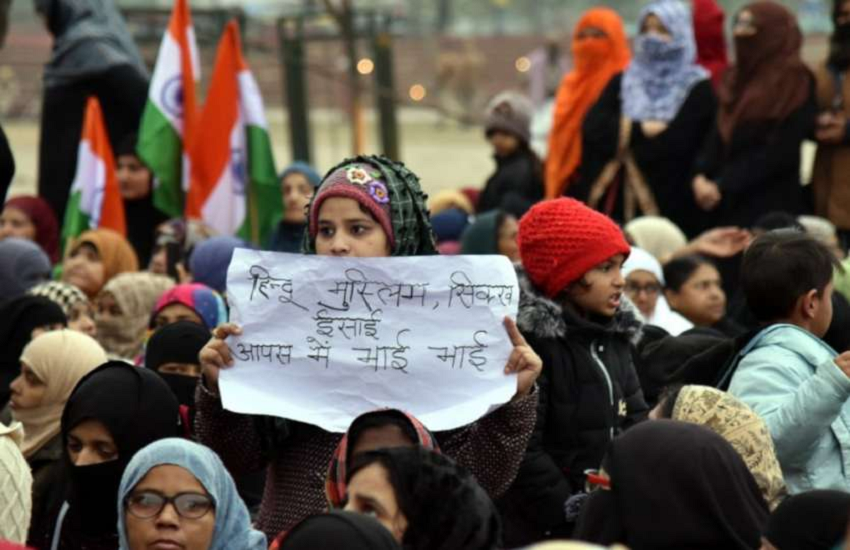 हिन्दू मुस्लिम, सिक्ख
ईसाई
आपस में भाई भाई